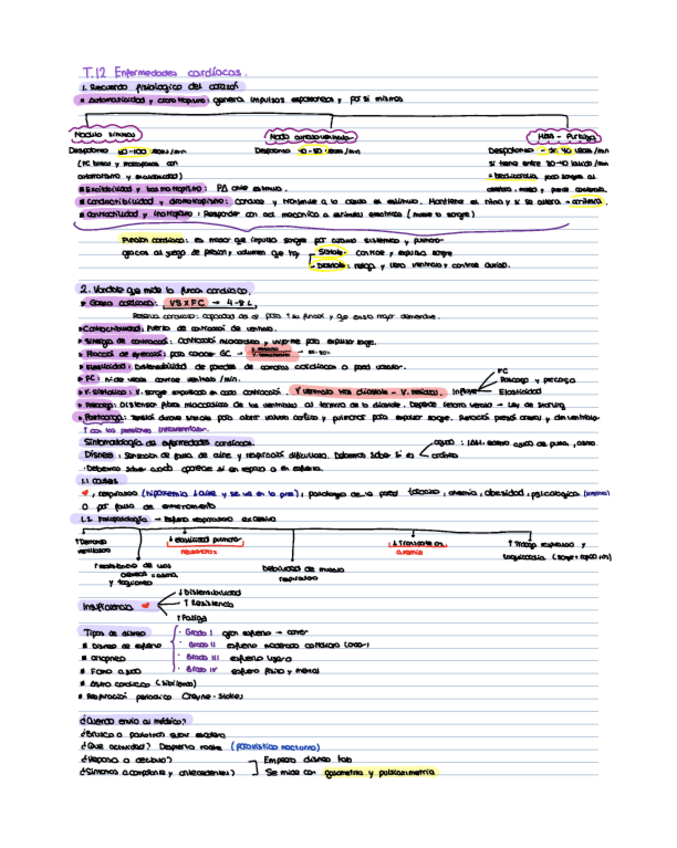 T.12 Enfermedades cardíacas.
1. Recuerdo fisiologico del corazón
Automaticidad y cronotropismo: genera impulsos espontaneos y por si mismos
Nodulo sinusal
Nodo auriculoventricular
Hiss - Purkinje
Despolariza 60-100 veces/min
Despolariza 40-60 veces/min
Despolariza 40 veces/min
si frena entre 30-40 latido/min
automatismo y excitabilidad)
Excitabilidad y batmotropismo: PA ante estimulo.
Conductibilidad y dromotropismo: conduce y transmite a lo largo el estimulo. Mantiene el ritmo y si se altera → arritmia.
Contractilidad y inotropismo: Responder con act. mecanica a estimulo electrico (mueve la sangre)
Función cardiaca: es motor que impulsa sangre por circuito sistemico y pulmonar
gracias al juego de presion y volumen que hay
Sistole: contrae y expulsa sangre
Diastole: relaja y llena ventriculo y contrae auricula.
2. Variables que mide la función cardiaca.
Gasto cardiaco: VS x FC → 4-8 L.
Reserva cardiaca: capacidad de el para f su función y que exista mayor demanda.
Contractilidad: fuerza de contracción de ventriculo.
Sinergia de contracción: contracción miocardica y uniforme para expulsar sangre.
Fracción de eyección: para conocer GC →
Elasticidad: Distensibilidad de paredes de camaras cardiacas o pared vascular.
FC: nº de veces contrae ventriculo /min.
V. sistolico: V. sangre expulsado en cada contracción. V ventriculo tras diastole - V. residual. Influye
FC
Precarga y poscarga
Elasticidad
Precarga: Distensión fibra miocardica de los ventriculos al termino de la diastole. Depende retorno venoso → Ley de Starling
Postcarga: Tensión durante sistole para abrir valvula aortica y pulmonar para expulsar sangre. Relación presión arterial y de ventriculo
↑ con las presiones intraventricular.
Sintomatología de enfermedades cardiacas.
Disnea: Sensación de falta de aire y respiración dificultosa. Debemos saber si es
aguda: IAM, edema agudo de pulmón, asma.
cronica
Debemos saber cuando aparece si en reposo o en esfuerzo.
1.1 causas
♥, respiratoria (hipoxemia ↓aire y se ve en la pres), patología de la pared toracica, anemia, obesidad, psicologica (ansiedad)
O por falta de entrenamiento
1.2. Fisiopatología → Esfuerzo respiratorio excesivo
↑Demanda ventilatoria
↓elasticidad pulmonar
restrictiva
↓Transporte O2
anemia
↑ Trabajo respiratorio y
↑resistencia de vias
aereas = asma
y tapones
Debilidad de musculo
respiratorio
Insuficiencia ♥
↓Distensibilidad
↑ Resistencia
↑Fatiga
Tipos de disnea
Disnea de esfuerzo
Ortopnea
EAP o agudo
Asma cardiaco (sibilancia)
Respiración periodica Cheyne-Stokes
Grado I gran esfuerzo → correr
Grado II esfuerzo moderado
Grado III esfuerzo ligero
Grado IV esfuerzo fisico y mental
¿Cuando envio al médico?
¿Brusco o paulatino subir escalera
¿Que actividad? Despierta noche (paroxistica nocturna)
¿Reposo o decubito?
¿Sintomas acompañante y antecedentes?
Empeora disnea
Se mide con gasometria y pulsioximetría